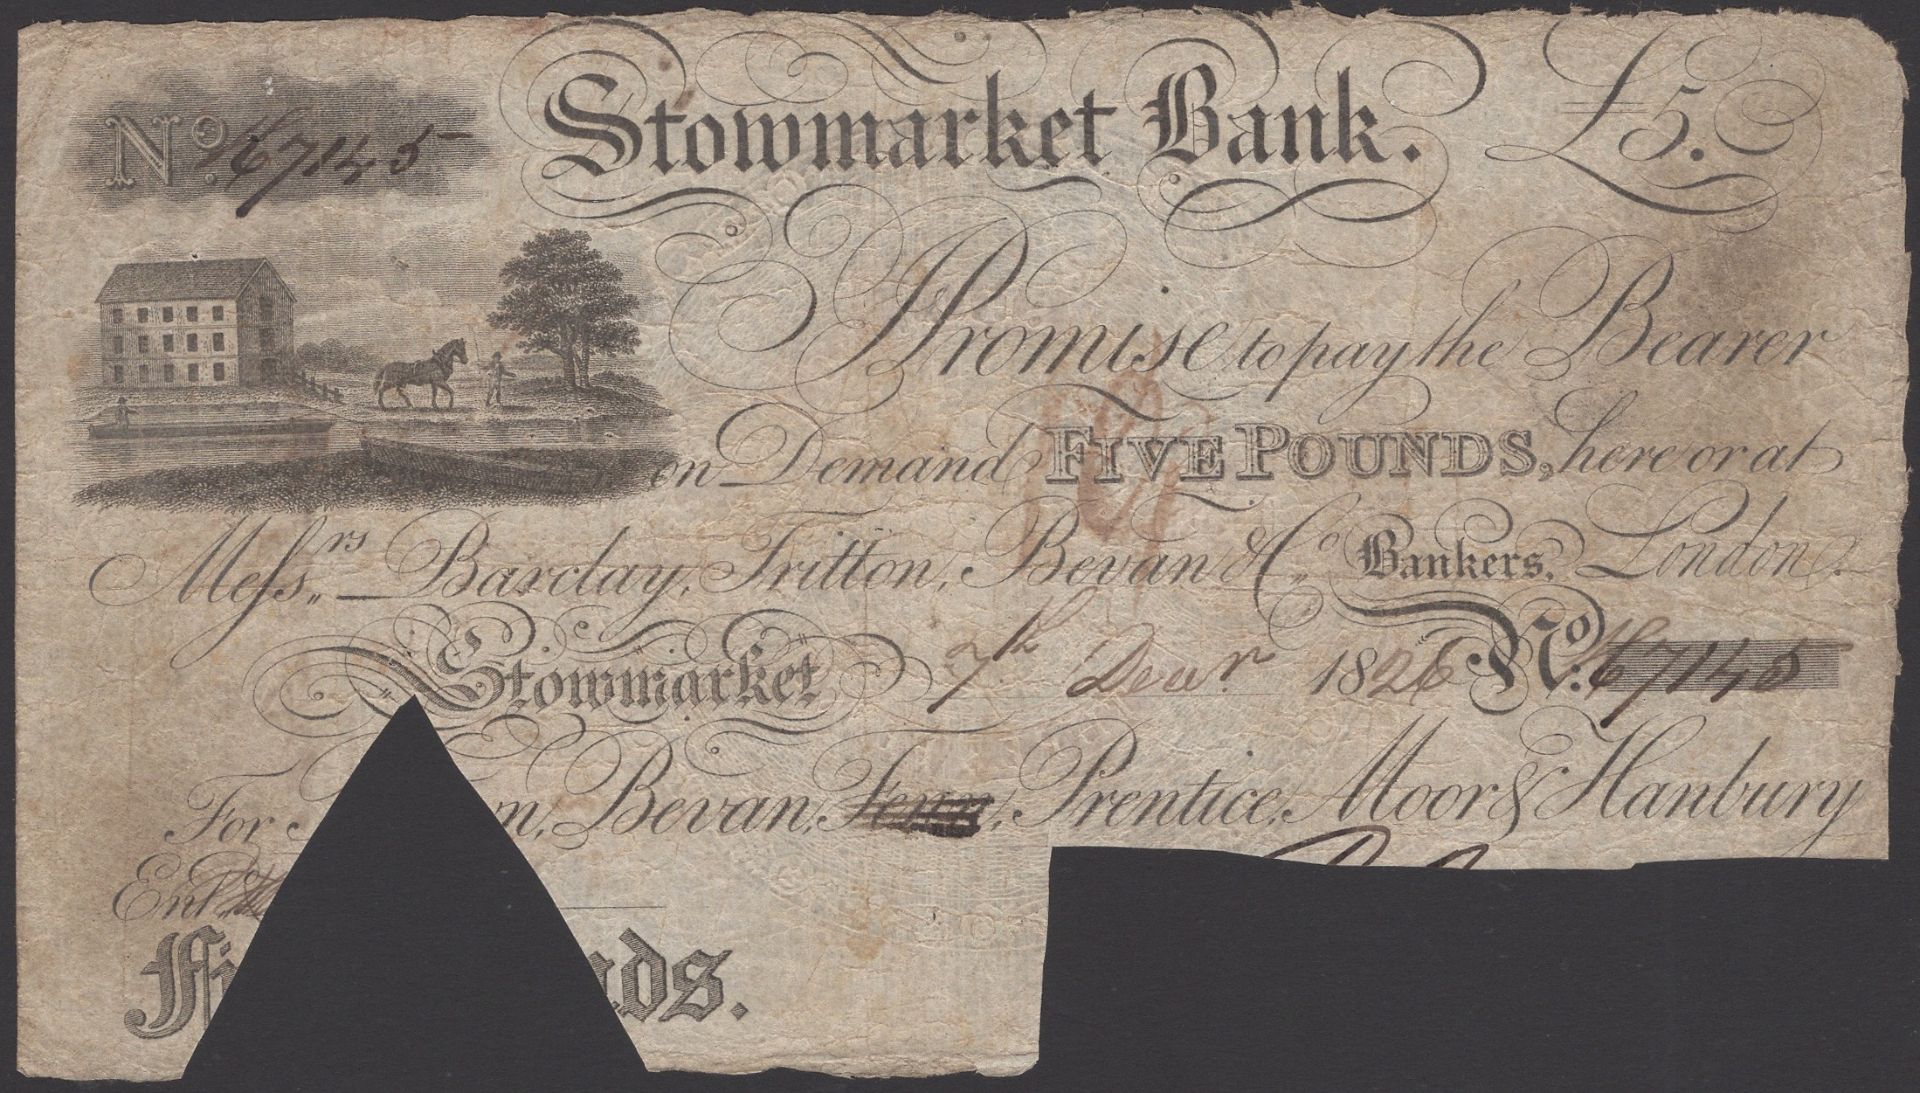 No. 167145 Stowmarket Bank. £5.
I Promise to pay the Bearer
on Demand FIVE POUNDS, here or at
Messrs. Barclay, Tritton, Bevan & Co. Bankers, London.
Stowmarket 7th Decr. 1826 No. 167145
For Bevan, Fenn, Prentice, Moor & Hanbury
Entd.